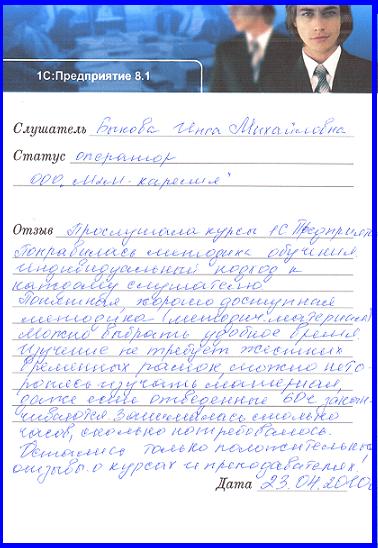 1С:Предприятие 8.1
Слушатель Быкова Инга Михайловна
Статус оператор
ООО „МЛМ-карелия"
Отзыв Прослушала курсы 1С Предприятие
Понравилась методика обучения
индивидуальный подход к
каждому слушателю
Понятная, хорошо доступная
методика (методич. материал)
Можно выбрать удобное время.
Изучение не требует жестких
временных рамок, можно не то-
ропясь изучать материал,
даже если отведенные 60ч закан-
чиваются занималась столько
часов, сколько потребовалось.
Остались только положительные
отзывы о курсах и преподавателях!
Дата 23.04.2010